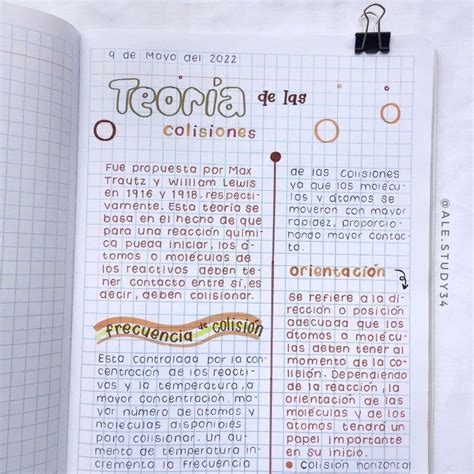 9 de Mayo del 2022
Teoría de las
colisiones
Fue propuesta por Max
Trautz y William Lewis
en 1916 y 1918, respecti-
vamente. Esta teoría se
basa en el hecho de que
para una reacción quími
ca pueda iniciar, los á-
tomos o moléculas de
los reactivos deben te-
ner contacto entre sí, es
decir, deben colisionar.
frecuencia de colisión
Esta controlada por la con
centración de los reacti-
vos y la temperatura, a
mayor concentración, ma-
yor número de atomos y
moléculas disponibles
para colisionar. Un au-
mento de temperatura in-
crementa la frecuencia
de las colisiones
ya que las molécu-
las y atomos se
moveran con mayor
rapidez, proporcio-
nando mayor contac-
to.
orientación
Se refiere a la di-
rección o posición
adecuada que los
átomos o molécu-
las deben tener al
momento de la co-
lisión. Dependiendo
de la reacción, la
orientación de las
moléculas y de los
atomos tendrá un
papel importante
en su inicio.
colisión horizontal
@ALE.STUDY34